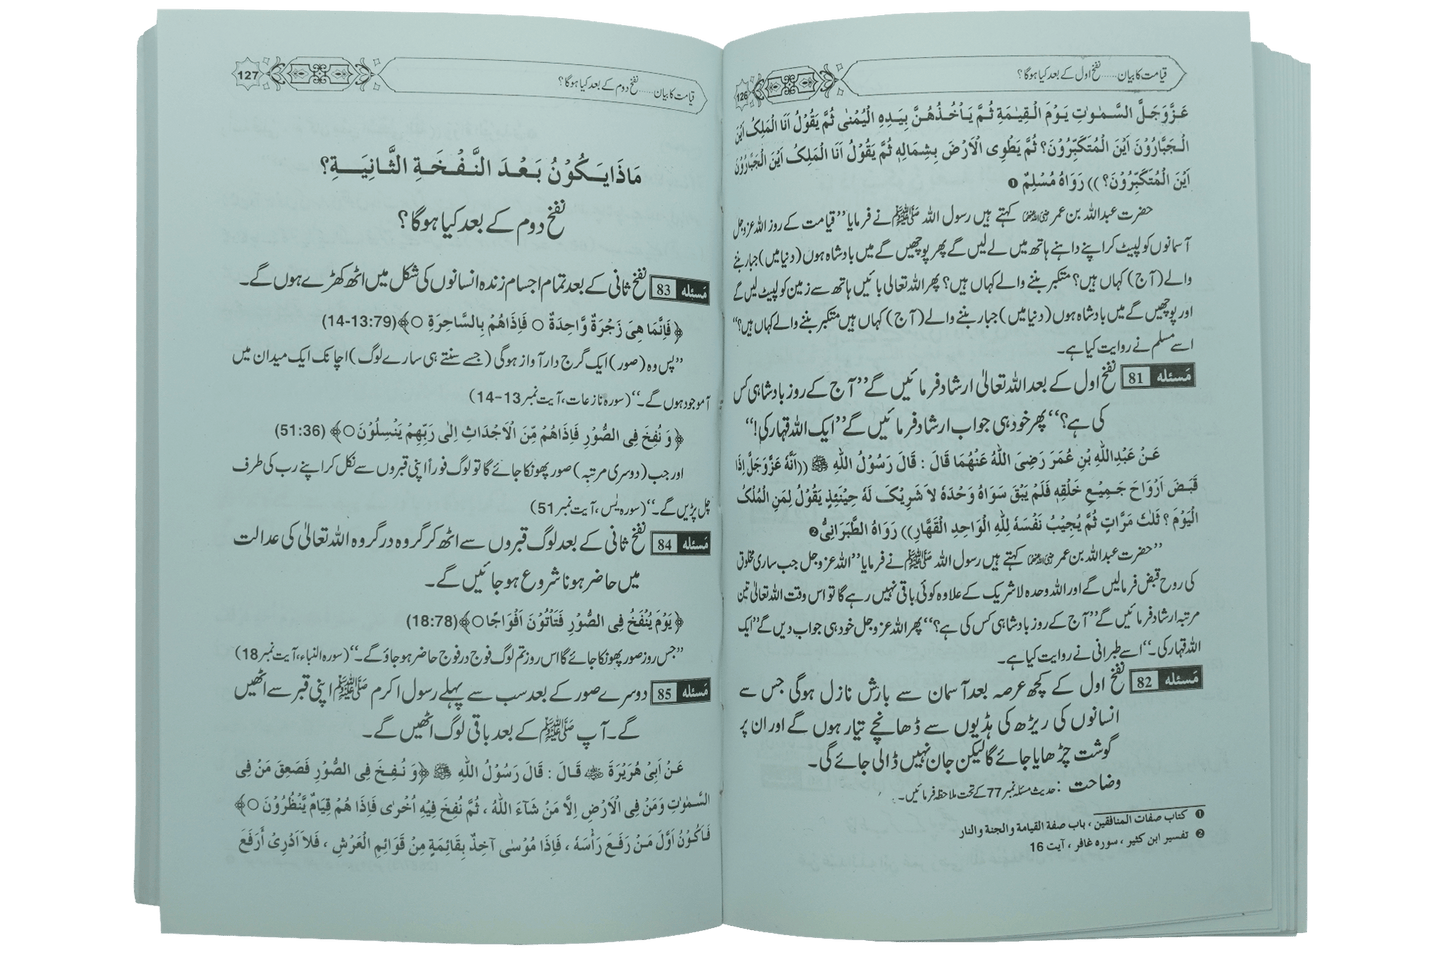 قیامت کا بیان...... نفخ اول کے بعد کیا ہوگا؟
126
عَزَّوَجَلَّ السَّمٰوٰتِ یَوْمَ الْقِیٰمَةِ ثُمَّ یَأْخُذُهُنَّ بِیَدِهِ الْیُمْنٰی ثُمَّ یَقُوْلُ اَنَا الْمَلِکُ اَیْنَ
الْجَبَّارُوْنَ اَیْنَ الْمُتَکَبِّرُوْنَ؟ ثُمَّ یَطْوِی الْاَرْضَ بِشِمَالِهِ ثُمَّ یَقُوْلُ اَنَا الْمَلِکُ اَیْنَ الْجَبَّارُوْنَ
اَیْنَ الْمُتَکَبِّرُوْنَ؟)) رَوَاهُ مُسْلِمٌ ❶
حضرت عبداللہ بن عمر رضی اللہ عنہما کہتے ہیں رسول اللہ ﷺ نے فرمایا ’’قیامت کے روز اللہ عزوجل
آسمانوں کو لپیٹ کر اپنے داہنے ہاتھ میں لے لیں گے پھر پوچھیں گے میں بادشاہ ہوں (دنیا میں) جبار بننے
والے (آج) کہاں ہیں؟ متکبر بننے والے کہاں ہیں؟ پھر اللہ تعالیٰ بائیں ہاتھ سے زمین کو لپیٹ لیں گے
اور پوچھیں گے میں بادشاہ ہوں (دنیا میں) جبار بننے والے (آج) کہاں ہیں متکبر بننے والے کہاں ہیں؟‘‘
اسے مسلم نے روایت کیا ہے۔
مَسئلہ 81 نفخ اول کے بعد اللہ تعالیٰ ارشاد فرمائیں گے ’’آج کے روز بادشاہی کس
کی ہے؟‘‘ پھر خود ہی جواب ارشاد فرمائیں گے ’’ایک اللہ قہار کی!‘‘
عَنْ عَبْدِاللّٰهِ بْنِ عُمَرَ رَضِیَ اللّٰهُ عَنْهُمَا قَالَ : قَالَ رَسُوْلُ اللّٰهِ ﷺ ((اَنَّهُ عَزَّوَجَلَّ اِذَا
قَبَضَ اَرْوَاحَ جَمِیْعِ خَلْقِهِ فَلَمْ یَبْقَ سَوَاهُ وَحْدَهُ لاَ شَرِیْکَ لَهُ حِیْنَئِذٍ یَقُوْلُ لِمَنِ الْمُلْکُ
الْیَوْمَ؟ ثَلٰثَ مَرَّاتٍ ثُمَّ یُجِیْبُ نَفْسَهُ لِلّٰهِ الْوَاحِدِ الْقَهَّارِ)) رَوَاهُ الطَّبَرَانِیُّ ❷
’’حضرت عبداللہ بن عمر رضی اللہ عنہما کہتے ہیں رسول اللہ ﷺ نے فرمایا ’’اللہ عزوجل جب ساری مخلوق
کی روح قبض فرمالیں گے اور اللہ وحدہ لاشریک کے علاوہ کوئی باقی نہیں رہے گا تو اس وقت اللہ تعالیٰ تین
مرتبہ ارشاد فرمائیں گے ’’آج کے روز بادشاہی کس کی ہے؟‘‘ پھر اللہ عزوجل خود ہی جواب دیں گے ’’ایک
اللہ قہار کی۔‘‘ اسے طبرانی نے روایت کیا ہے۔
مَسئلہ 82 نفخ اول کے کچھ عرصہ بعد آسمان سے بارش نازل ہوگی جس سے
انسانوں کی ریڑھ کی ہڈیوں سے ڈھانچے تیار ہوں گے اور ان پر
گوشت چڑھایا جائے گا لیکن جان نہیں ڈالی جائے گی۔
وضاحت : حدیث مسئلہ نمبر 77 کے تحت ملاحظہ فرمائیں۔
❶ کتاب صفات المنافقین ، باب صفة القیامة والجنة والنار
❷ تفسیر ابن کثیر ، سورہ غافر ، آیت 16
قیامت کا بیان...... نفخ دوم کے بعد کیا ہوگا؟
127
مَاذَا یَکُوْنُ بَعْدَ النَّفْخَةِ الثَّانِیَةِ؟
نفخ دوم کے بعد کیا ہوگا؟
مَسئلہ 83 نفخ ثانی کے بعد تمام اجسام زندہ انسانوں کی شکل میں اٹھ کھڑے ہوں گے۔
﴿فَاِنَّمَا هِیَ زَجْرَةٌ وَّاحِدَةٌ ○ فَاِذَاهُمْ بِالسَّاهِرَةِ ○﴾(14-13:79)
’’پس وہ (صور) ایک گرج دار آواز ہوگی (جسے سنتے ہی سارے لوگ) اچانک ایک میدان میں
آموجود ہوں گے۔‘‘ (سورہ نازعات، آیت نمبر 13-14)
﴿وَ نُفِخَ فِی الصُّوْرِ فَاِذَاهُمْ مِّنَ الْاَجْدَاثِ اِلٰی رَبِّهِمْ یَنْسِلُوْنَ○﴾ (51:36)
اور جب (دوسری مرتبہ) صور پھونکا جائے گا تو لوگ فوراً اپنی قبروں سے نکل کر اپنے رب کی طرف
چل پڑیں گے۔‘‘ (سورہ یٰس، آیت نمبر 51)
مَسئلہ 84 نفخ ثانی کے بعد لوگ قبروں سے اٹھ کر گروہ در گروہ اللہ تعالیٰ کی عدالت
میں حاضر ہونا شروع ہو جائیں گے۔
﴿یَوْمَ یُنْفَخُ فِی الصُّوْرِ فَتَاْتُوْنَ اَفْوَاجًا○﴾(18:78)
’’جس روز صور پھونکا جائے گا اس روز تم لوگ فوج در فوج حاضر ہو جاؤ گے۔‘‘ (سورہ النباء، آیت نمبر 18)
مَسئلہ 85 دوسرے صور کے بعد سب سے پہلے رسول اکرم ﷺ اپنی قبر سے اٹھیں
گے۔ آپ ﷺ کے بعد باقی لوگ اٹھیں گے۔
عَنْ اَبِیْ هُرَیْرَةَ رضی اللہ عنہ قَالَ : قَالَ رَسُوْلُ اللّٰهِ ﷺ ﴿وَ نُفِخَ فِی الصُّوْرِ فَصَعِقَ مَنْ فِی
السَّمٰوٰتِ وَمَنْ فِی الْاَرْضِ اِلاَّ مَنْ شَآءَ اللّٰهُ ، ثُمَّ نُفِخَ فِیْهِ اُخْرٰی فَاِذَا هُمْ قِیَامٌ یَّنْظُرُوْنَ○﴾
فَاَکُوْنُ اَوَّلَ مَنْ رَفَعَ رَأْسَهُ ، فَاِذَا مُوْسٰی آخِذٌ بِقَائِمَةٍ مِنْ قَوَائِمِ الْعَرْشِ ، فَلاَ اَدْرِیْ أَرَفَعَ